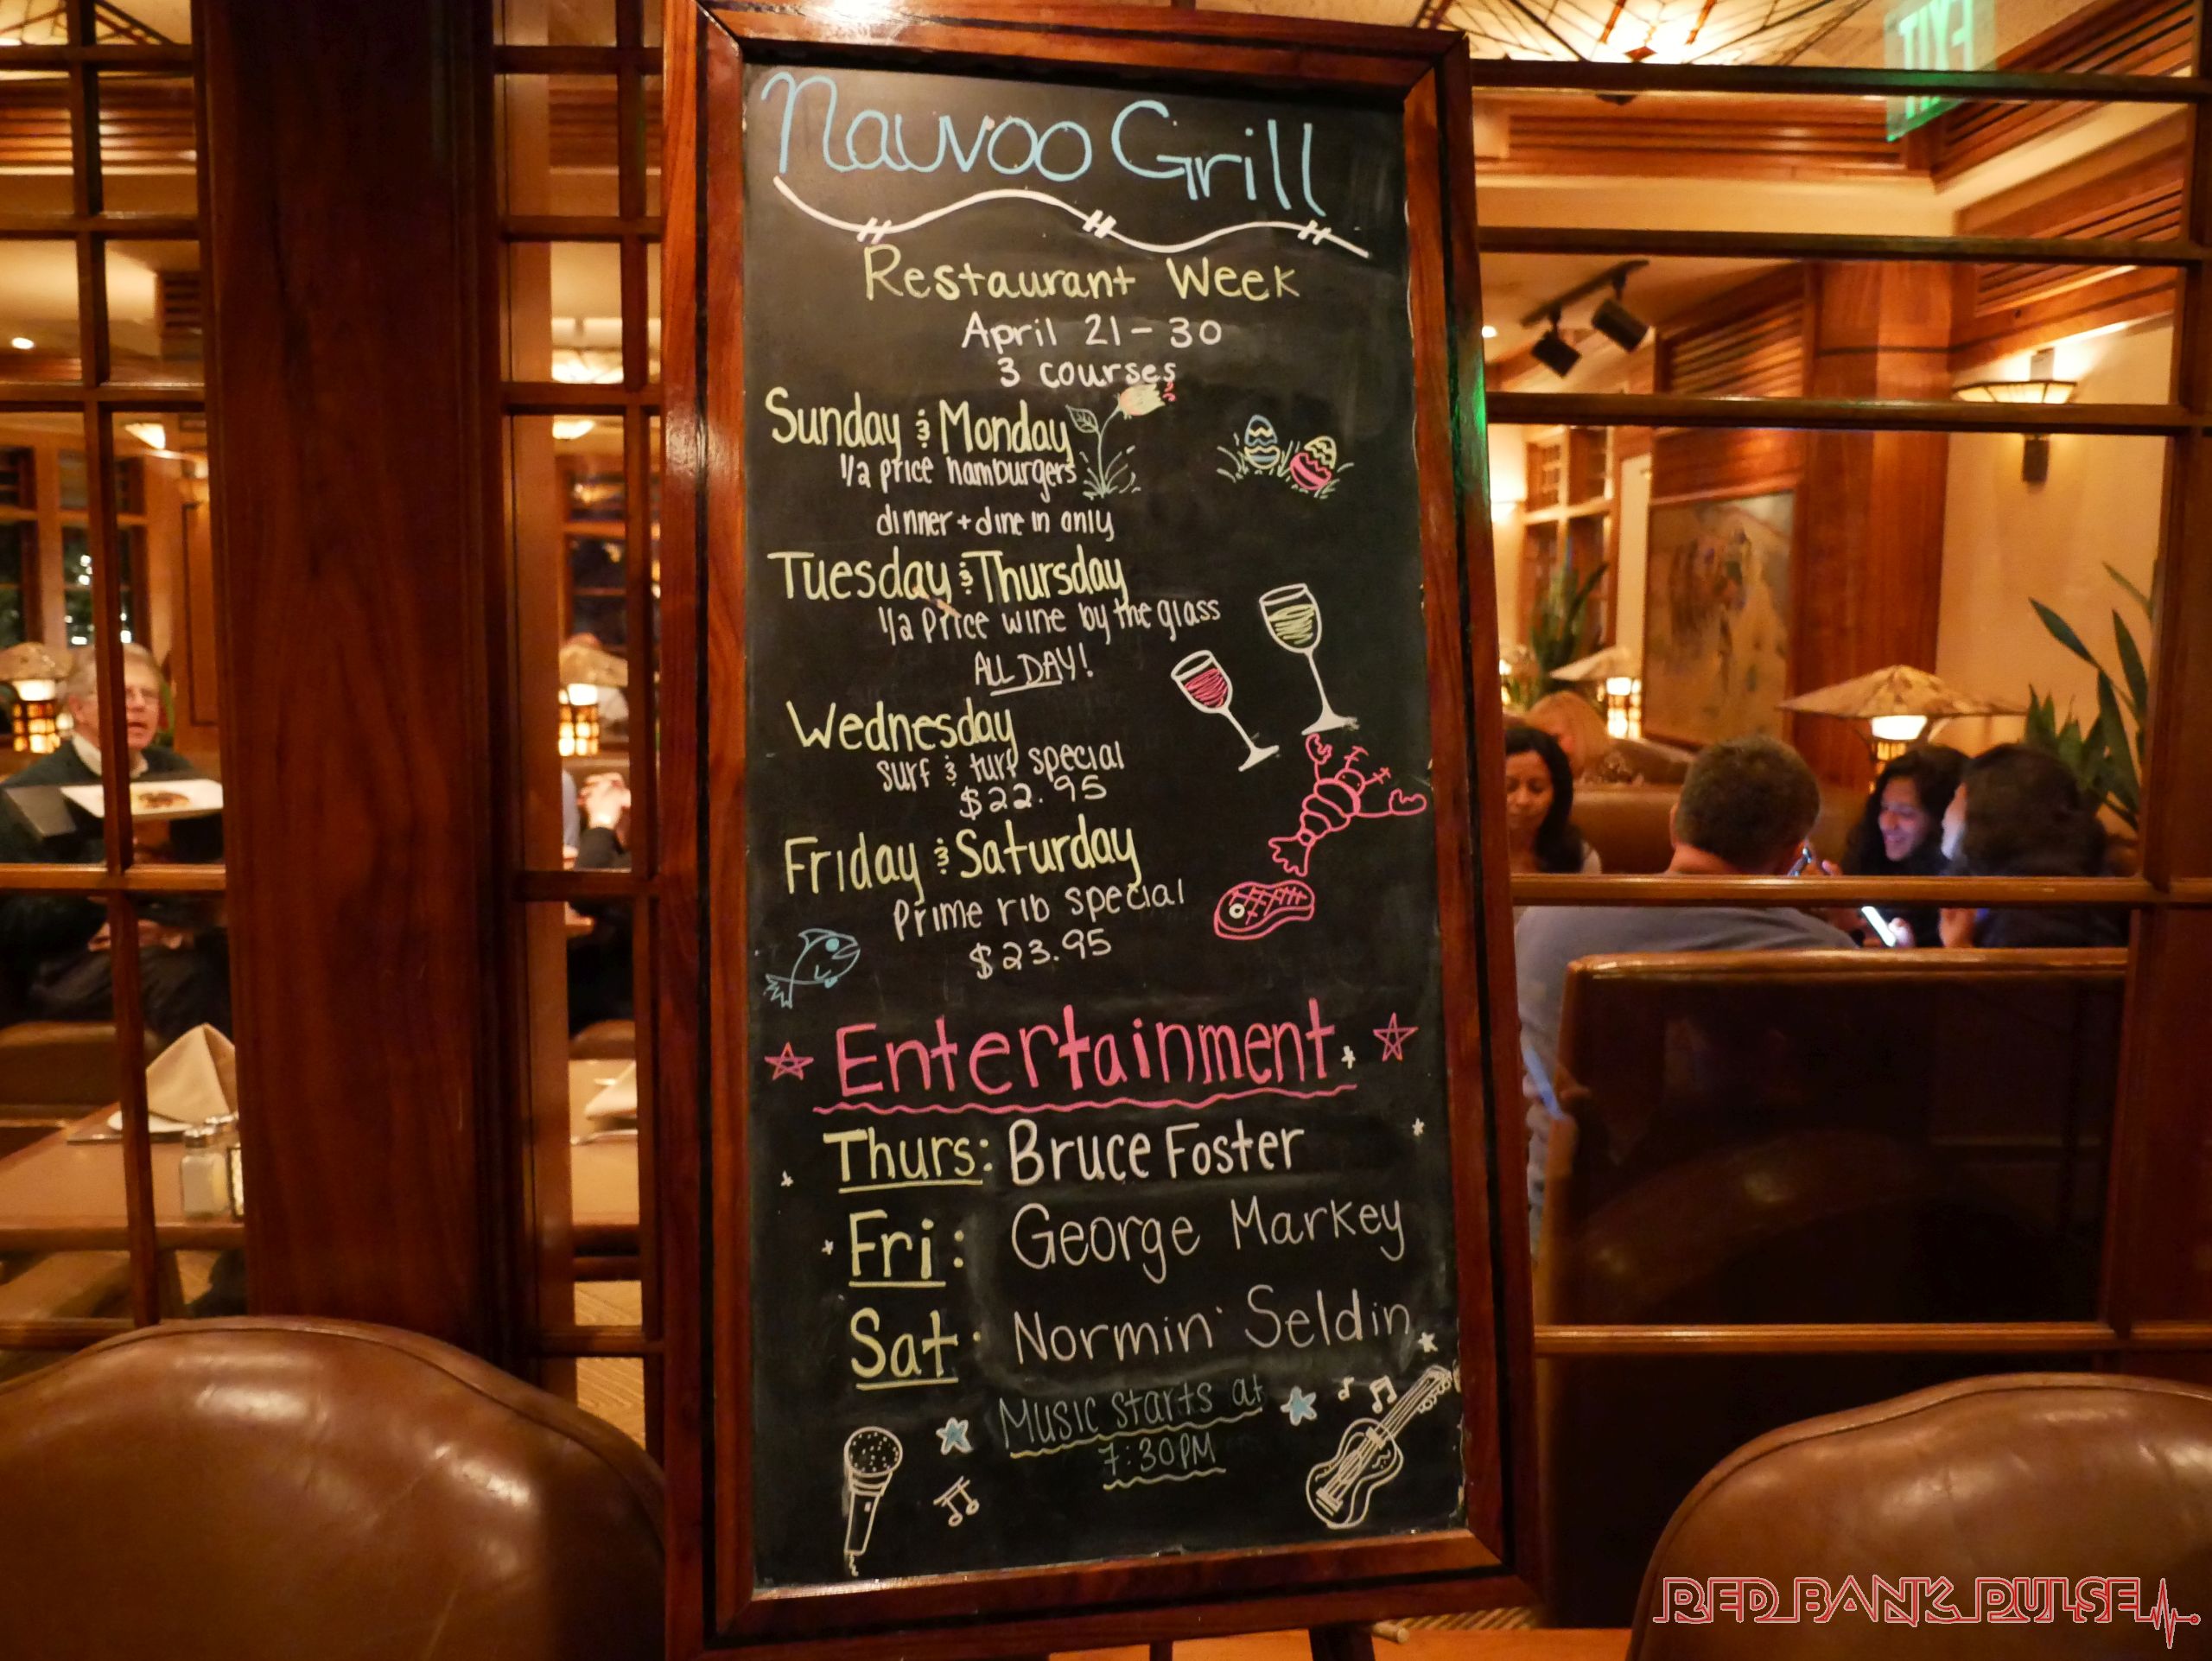 Nauvoo Grill
Restaurant Week
April 21-30
3 courses
Sunday & Monday
1/2 price hamburgers
dinner + dine in only
Tuesday & Thursday
1/2 price wine by the glass
ALL DAY!
Wednesday
surf & turf special
$22.95
Friday & Saturday
Prime rib special
$23.95
Entertainment
Thurs: Bruce Foster
Fri: George Markey
Sat: Normin' Seldin
Music starts at
7:30PM
EXIT
RED BANK PULSE